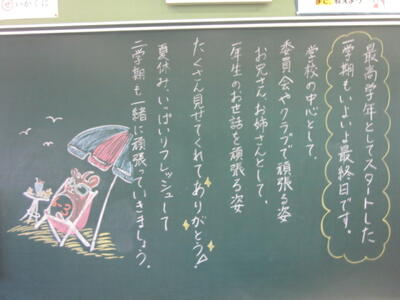 最高学年としてスタートした
一学期もいよいよ最終日です。
学校の中心として、
委員会やクラブで頑張る姿
お兄さん、お姉さんとして、
1年生のお世話を頑張る姿
たくさん見せてくれてありがとう!
夏休み、いっぱいリフレッシュして
二学期も一緒に頑張っていきましょう。